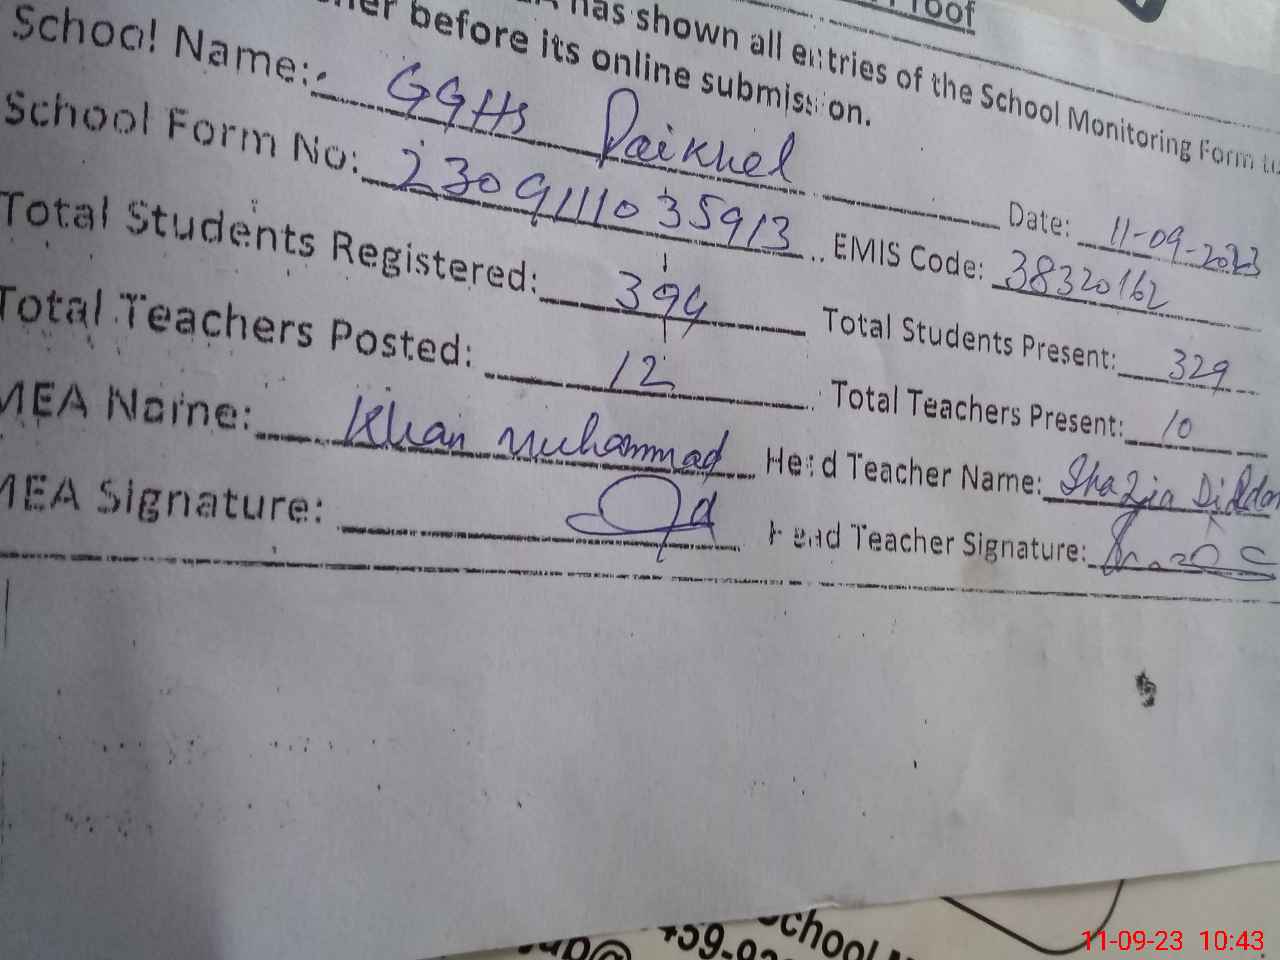 roof
has shown all entries of the School Monitoring Form
her before its online submission.
School Name: GGHS Paikhel Date: 11-09-2023
School Form No: 2309111035913 EMIS Code: 38320162
Total Students Registered: 394 Total Students Present: 329
Total Teachers Posted: 12 Total Teachers Present: 10
MEA Name: Khan Muhammad Head Teacher Name: Shazia
MEA Signature: Head Teacher Signature:
School
11-09-23 10:43